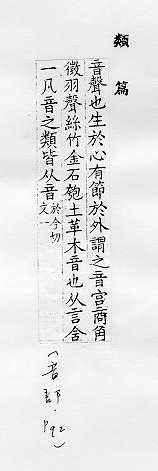 類篇
音聲也生於心有節於外謂之音宮商角
徵羽聲絲竹金石匏土革木音也从言含
一凡音之類皆从音於今切
文一
(音部·P92)